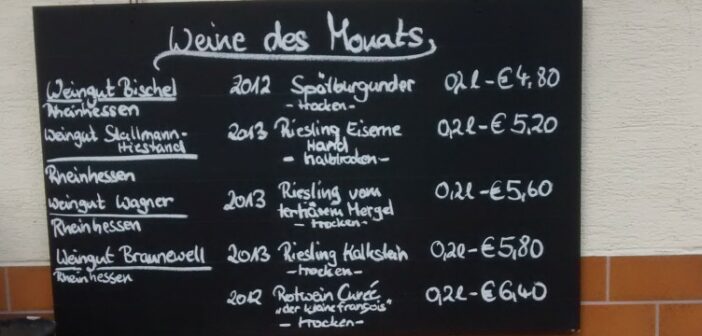 Weine des Monats
Weingut Bischel 2012 Spätburgunder 0,2l-€4,80
Rheinhessen -trocken-
Weingut Stallmann- 2013 Riesling Eiserne 0,2l-€5,20
Hiestand Hand
-halbtrocken-
Rheinhessen
Weingut Wagner 2013 Riesling vom 0,2l-€5,60
tertiärem Mergel
Rheinhessen -trocken-
Weingut Braunewell 2013 Riesling Kalkstein 0,2l-€5,80
Rheinhessen -trocken-
2012 Rotwein 0,2l-€6,40
"der kleine françois"
-trocken-